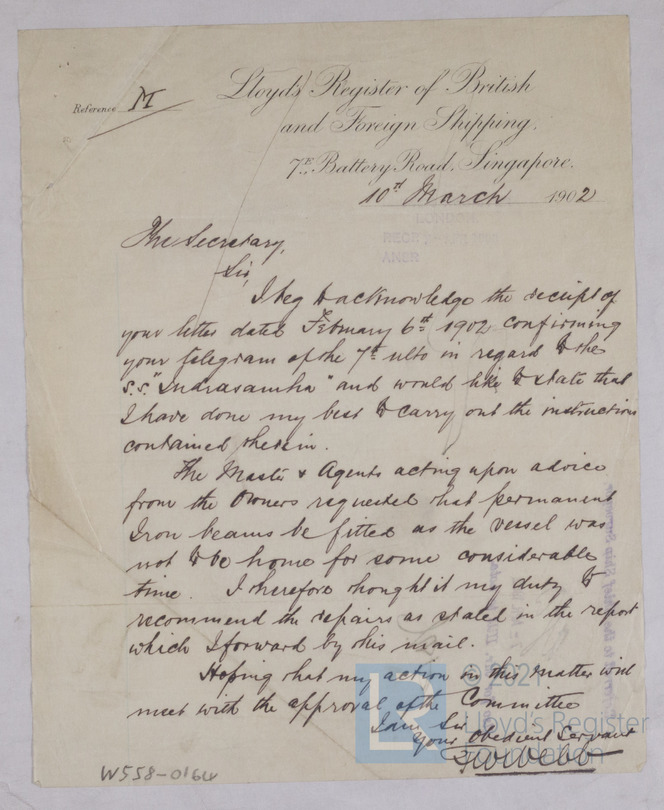 Reference M
Lloyd's Register of British
and Foreign Shipping,
7E, Battery Road, Singapore.
10th March 1902
The Secretary,
Sir,
I beg to acknowledge the receipt of
your letter dated February 6th 1902 confirming
your telegram of the 7th ulto in regard to the
S.S. "Indrasamha" and would like to state that
I have done my best to carry out the instructions
contained therein.
The Master & Agents acting upon advice
from the Owners requested that permanent
Iron beams be fitted as the vessel was
not to be home for some considerable
time. I therefore thought it my duty to
recommend the repairs as stated in the report
which I forward by this mail.
Hoping that my action in this matter will
meet with the approval of the Committee
I am Sir
Your Obedient Servant
W558-0164
© 2021
Lloyd's Register
Foundation
LR